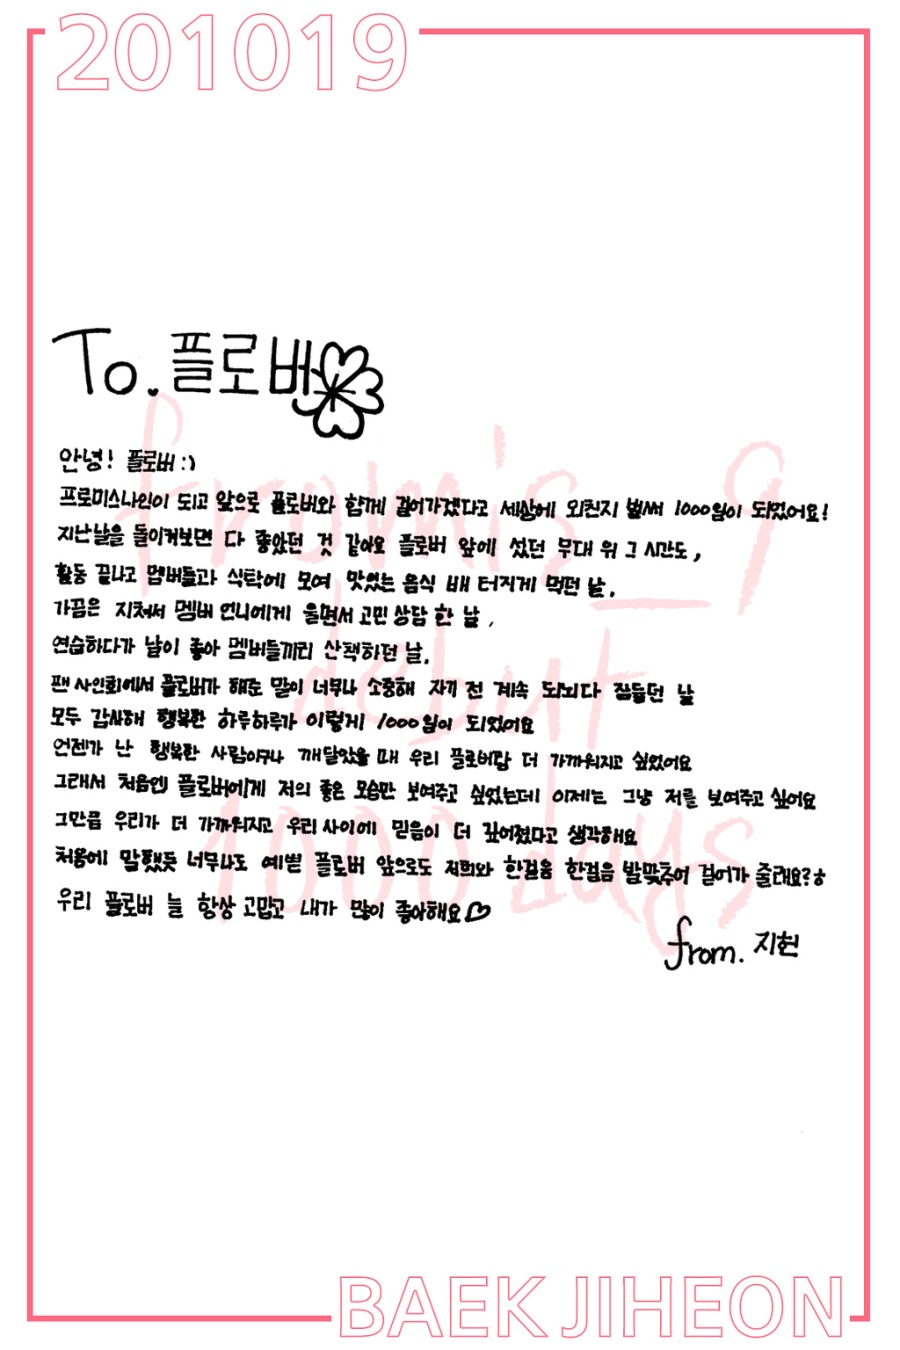 201019
To. 플로버
안녕! 플로버 :)
프로미스나인이 되고 앞으로 플로버와 함께 걸어가겠다고 세상에 외친지 벌써 1000일이 되었어요!
지난날을 돌이켜보면 다 좋았던 것 같아요 플로버 앞에 섰던 무대 위 그 시간도,
활동 끝나고 멤버들과 식탁에 모여 맛있는 음식 배 터지게 먹던 날,
가끔은 지쳐서 멤버 언니에게 울면서 고민 상담 한 날,
연습하다가 날이 좋아 멤버들끼리 산책하던 날,
팬 사인회에서 플로버가 해준 말이 너무나 소중해 자기 전 계속 되뇌다 잠들던 날
모두 감사해 행복한 하루하루가 이렇게 1000일이 되었어요
언젠가 난 행복한 사람이구나 깨달았을 때 우리 플로버랑 더 가까워지고 싶었어요
그래서 처음엔 플로버에게 저의 좋은 모습만 보여주고 싶었는데 이제는 그냥 저를 보여주고 싶어요
그만큼 우리가 더 가까워지고 우리 사이에 믿음이 더 깊어졌다고 생각해요
처음에 말했듯 너무나도 예쁜 플로버 앞으로도 저희와 한걸음 한걸음 발맞추어 걸어가 줄래요?ㅎ
우리 플로버 늘 항상 고맙고 내가 많이 좋아해요♡
from. 지헌
fromis_9
debut
1000 days
BAEK JIHEON